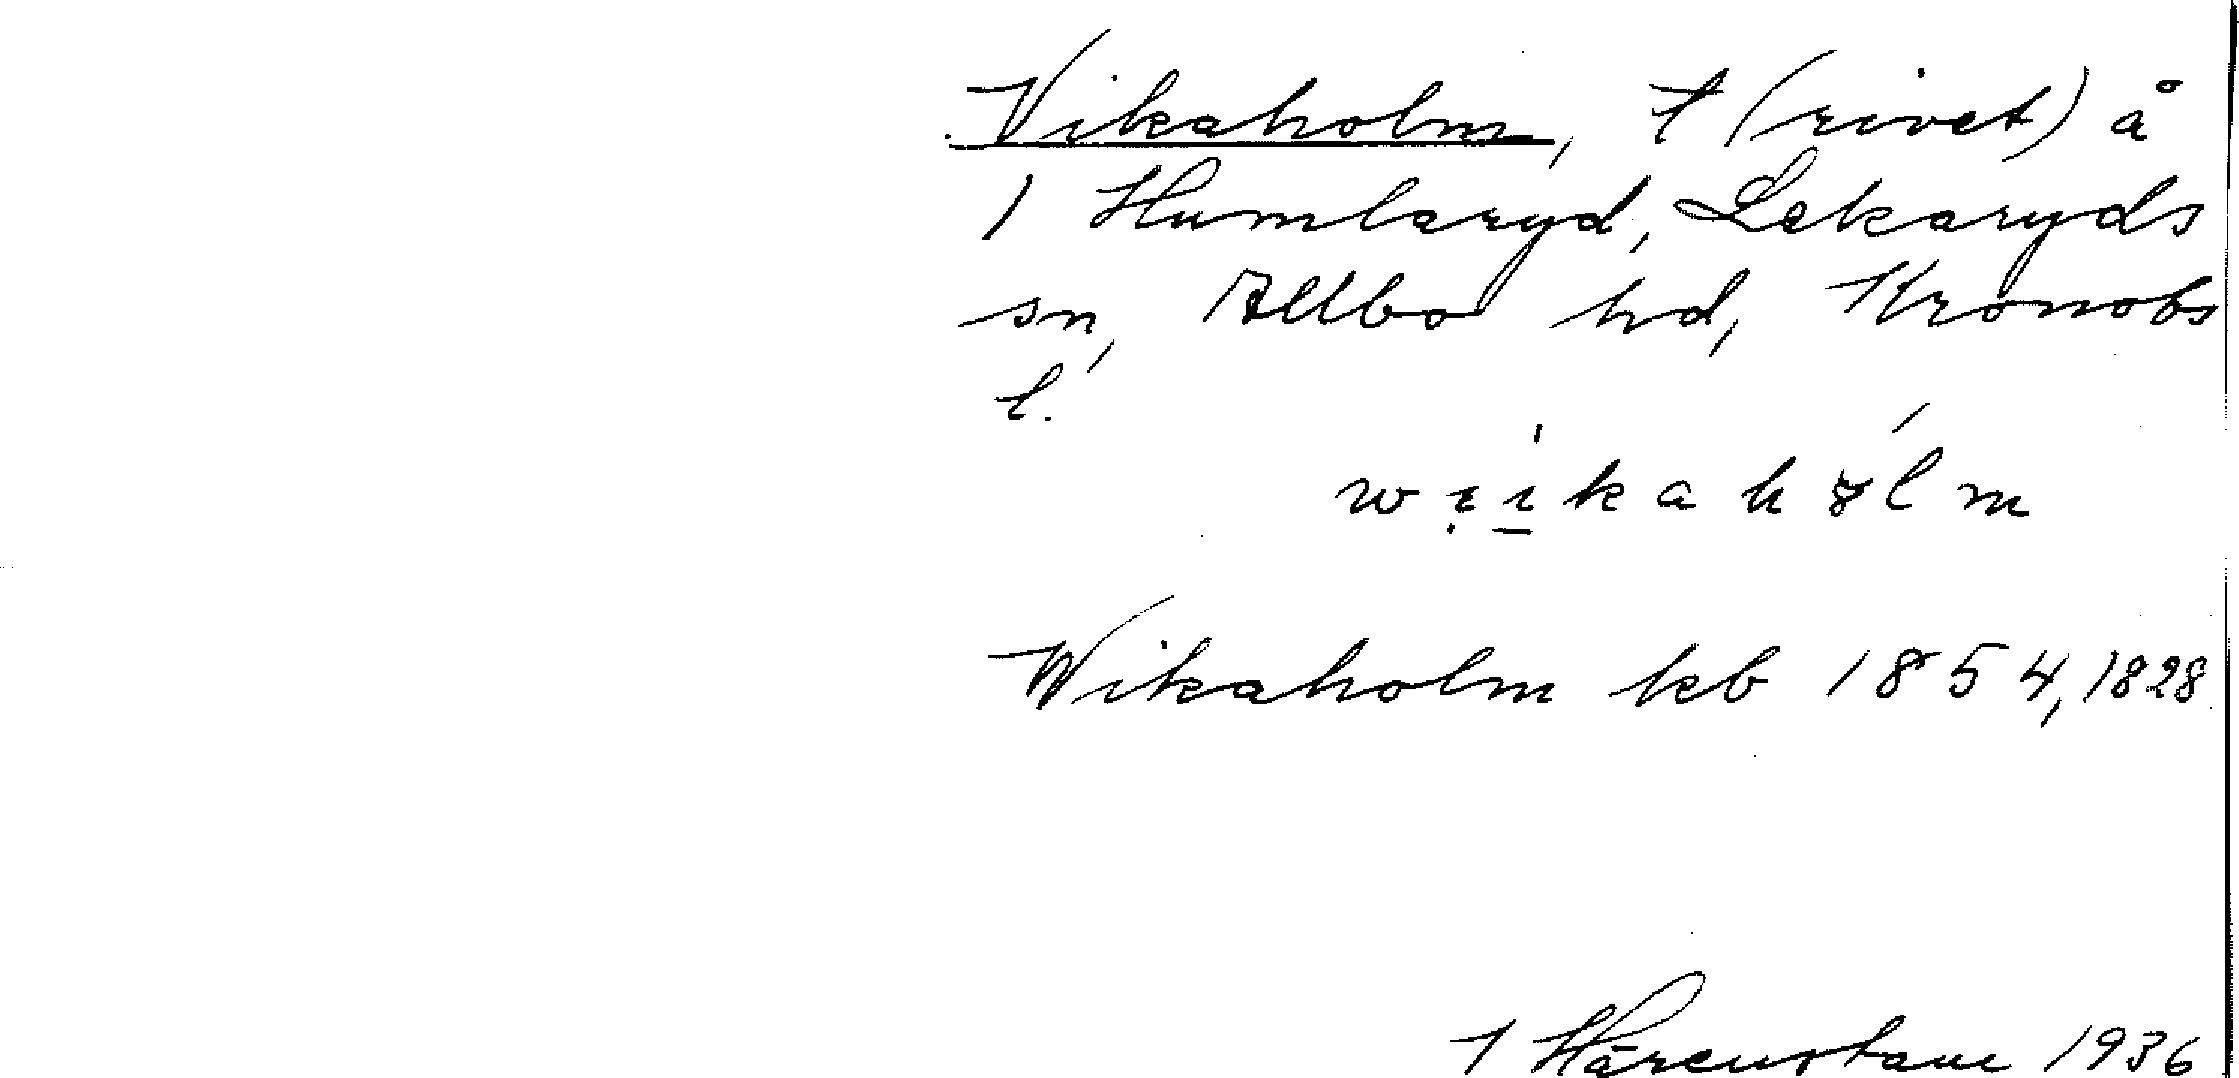 Vikaholm, t (rivet) å
1 Humleryd, Lekaryds
sn, Allbo hd, Kronobs
l.
Wikaholm kb 1854, 1828
1936